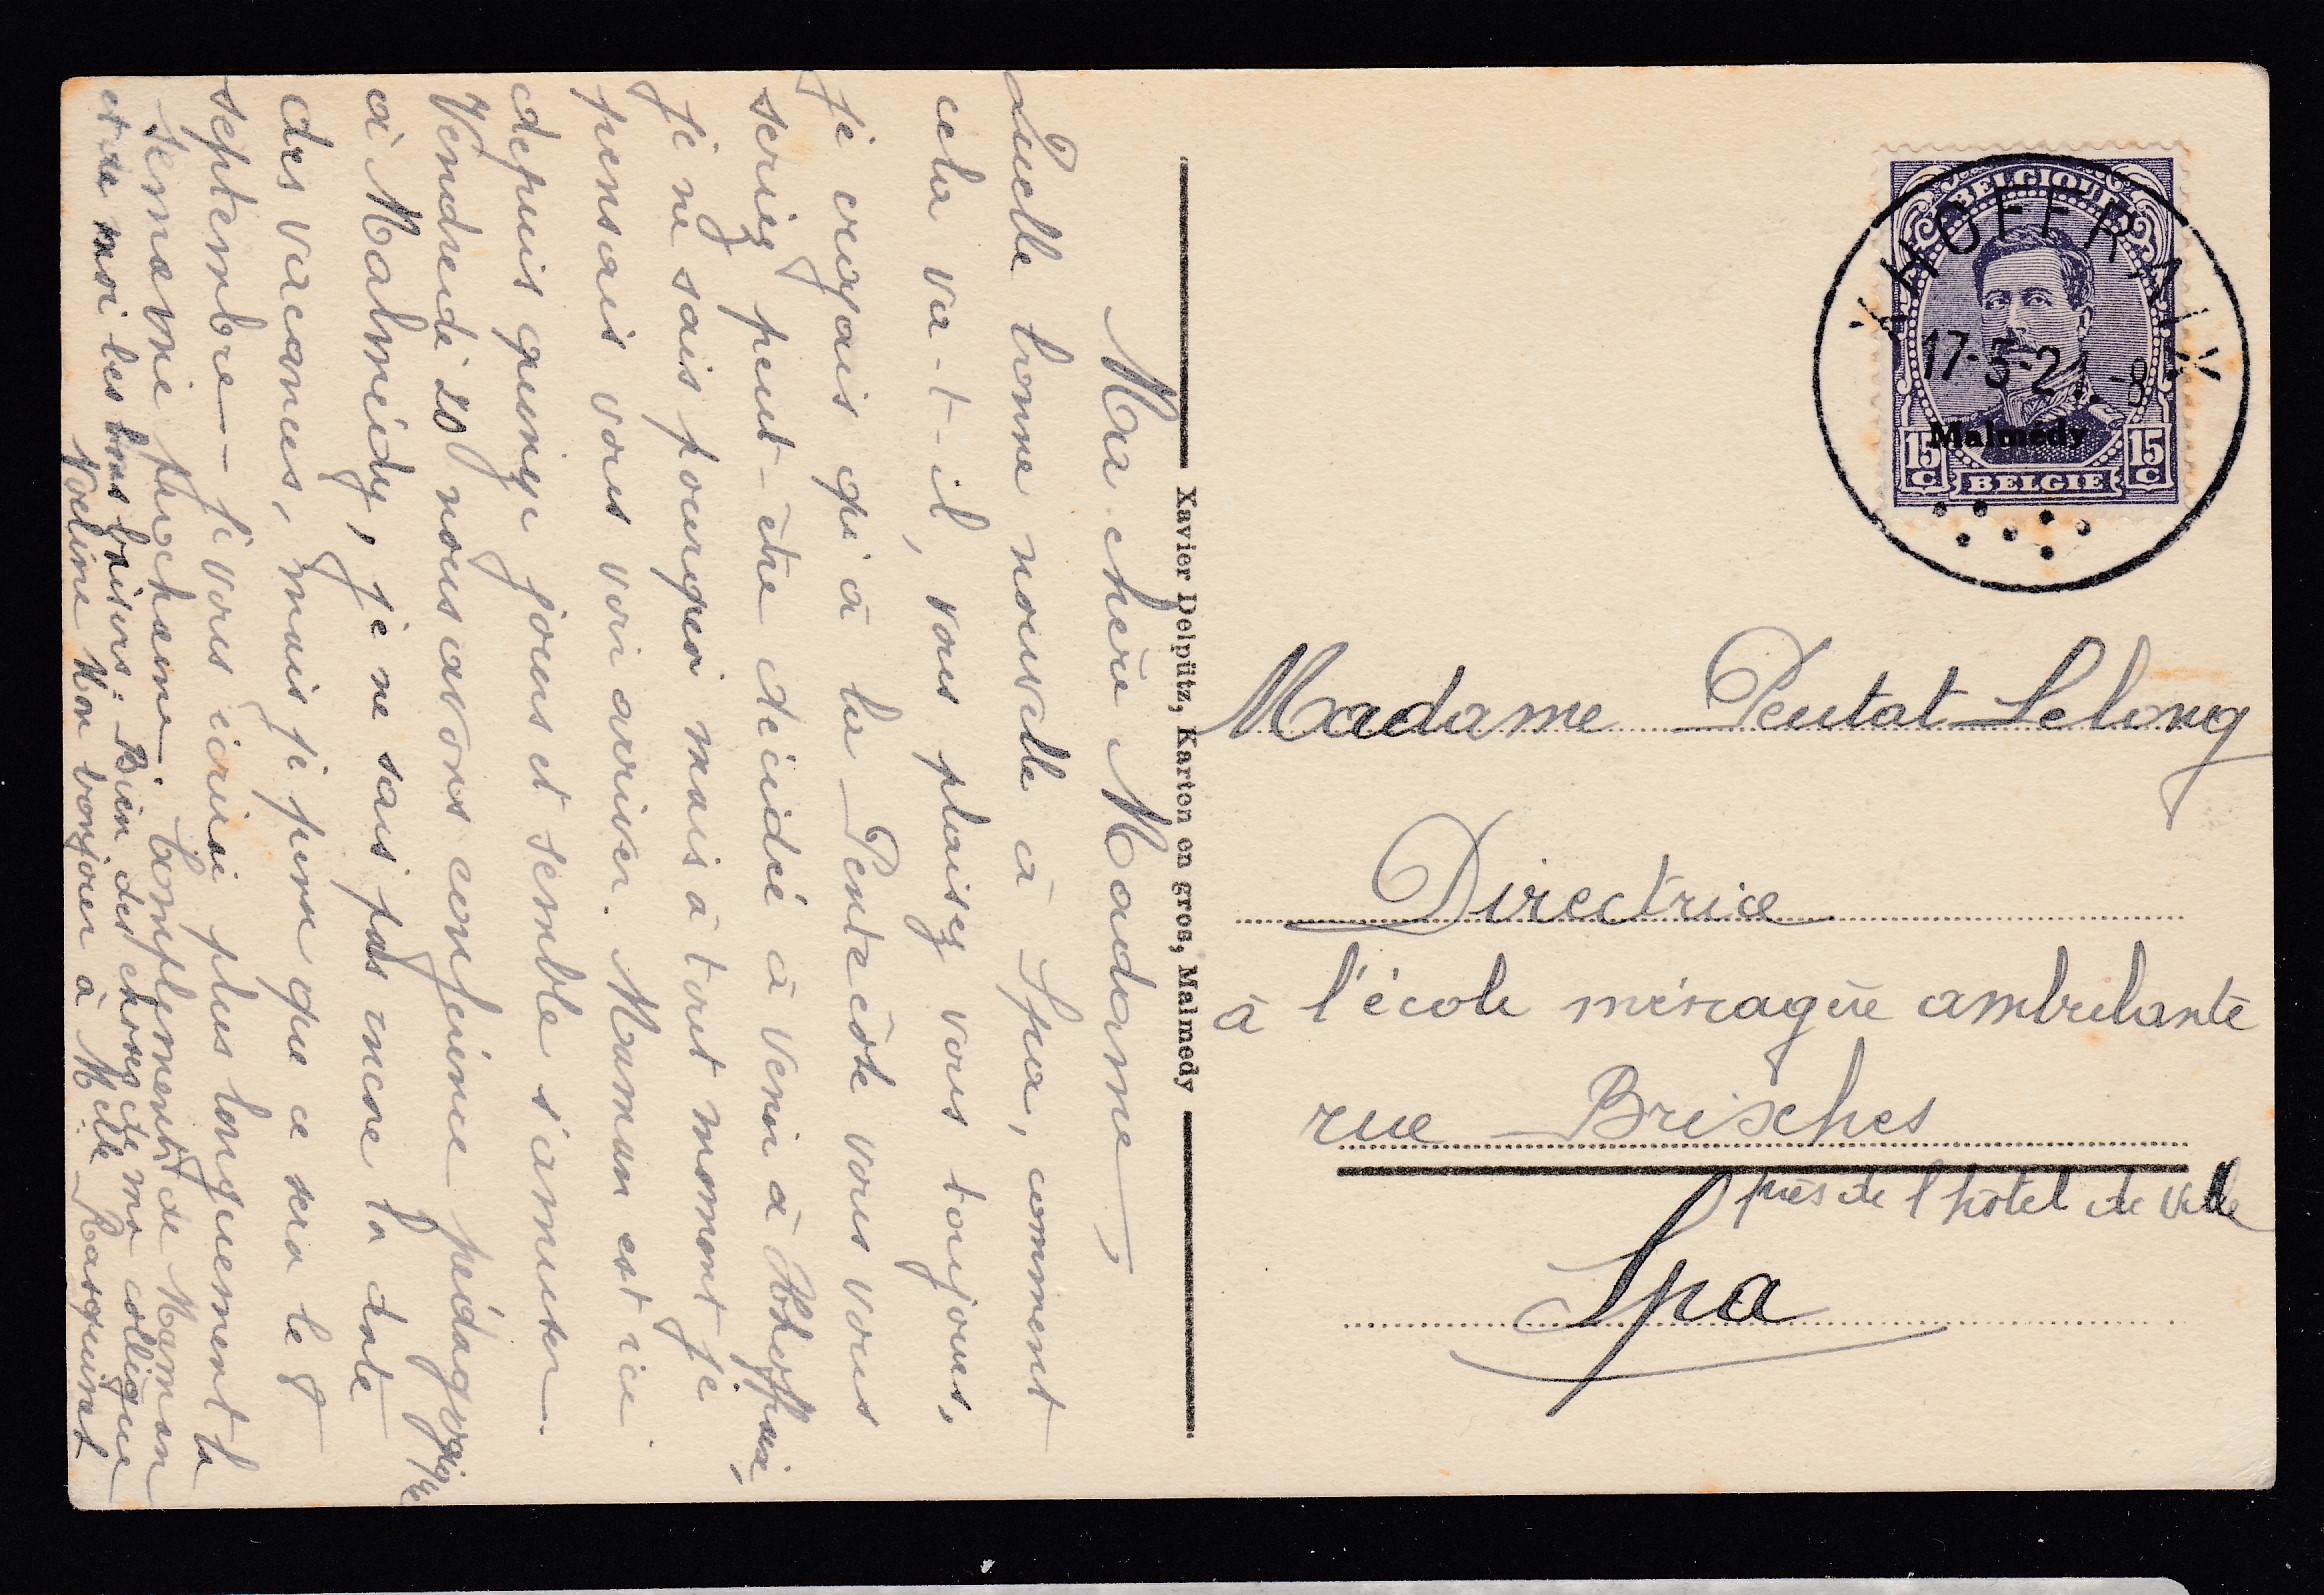 Ma chère Madame,
Quelle bonne nouvelle à Spa, comment
cela va-t-il, vous plaisez vous toujours,
je croyais qu'à la Pentecôte vous vous
seriez peut-être décidé à venir à
je ne sais pourquoi mais à tout moment je
pensais vous voir arriver. Maman est ici
depuis quinze jours et semble s'amuser.
Vendredi 20 nous avons conférence pédagogique
à Malmédy, je ne sais pas encore la date
des vacances, mais je pense que ce sera le 8
septembre – je vous écrirai plus longuement la
semaine prochaine. Compliments de Maman
et de moi les bons baisers. Bien des choses de ma collègue
Mon bonjour à Melle
Xavier Delpütz, Karton en gros, Malmedy
BELGIQUE
HOFFRAI
17-5-21.-8
Malmédy
15 C
15 C
BELGIE
Madame Peutat Lelong
Directrice
à l'école ménagère ambulante
rue Brixhes
près de l'hôtel de ville
Spa